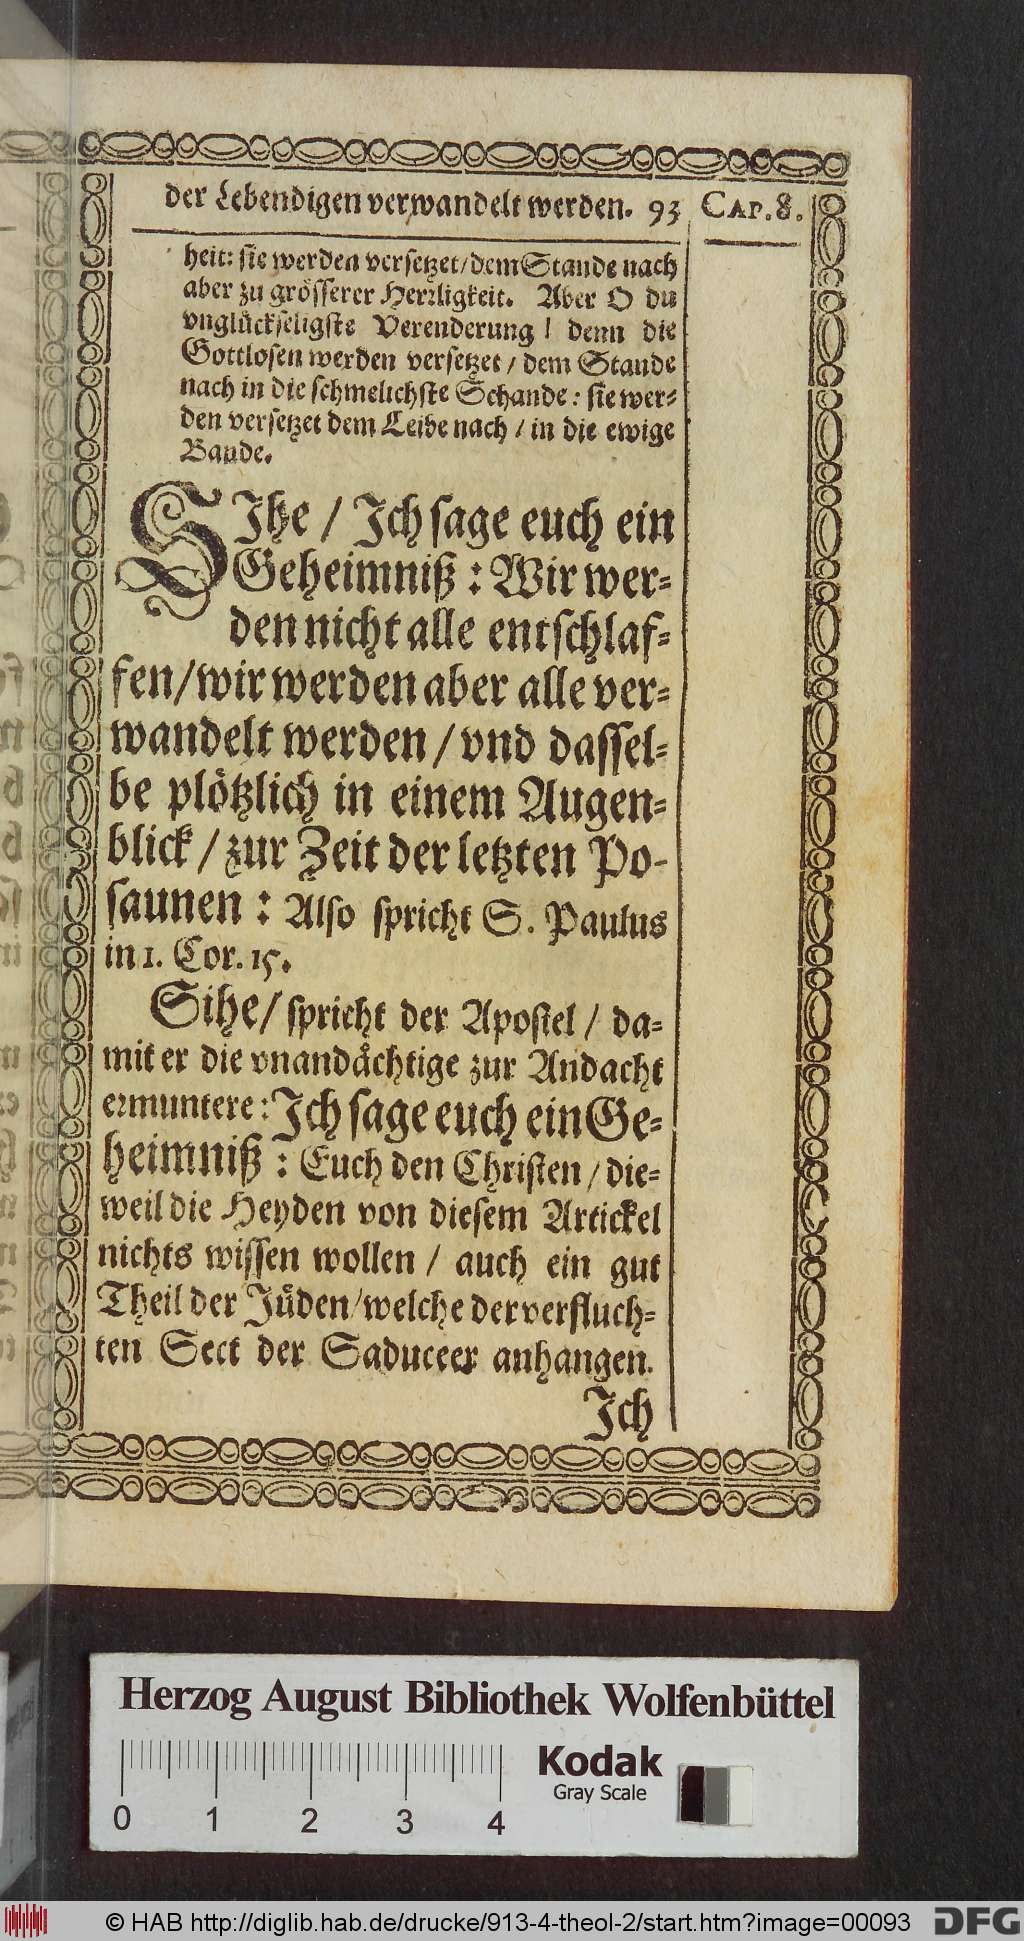 der Lebendigen verwandelt werden. 93 CAP. 8.
heit: sie werden versetzet / dem Stande nach
aber zu grösserer Herrligkeit. Aber O du
vnglückseligste Verenderung! denn die
Gottlosen werden versetzet / dem Stande
nach in die schmelichste Schande: sie wer-
den versetzet dem Leibe nach / in die ewige
Bande.
SIhe / Ich sage euch ein
Geheimniß: Wir wer-
den nicht alle entschlaf-
fen / wir werden aber alle ver-
wandelt werden / vnd dassel-
be plötzlich in einem Augen-
blick / zur Zeit der letzten Po-
saunen: Also spricht S. Paulus
in 1. Cor. 15.
Sihe / spricht der Apostel / da-
mit er die vnandächtige zur Andacht
ermuntere: Ich sage euch ein Ge-
heimniß: Euch den Christen / die-
weil die Heyden von diesem Artickel
nichts wissen wollen / auch ein gut
Theil der Jüden / welche der verfluch-
ten Sect der Saduceer anhangen.
Ich
Herzog August Bibliothek Wolfenbüttel
Kodak
Gray Scale
0 1 2 3 4
© HAB http://diglib.hab.de/drucke/913-4-theol-2/start.htm?image=00093
DFG